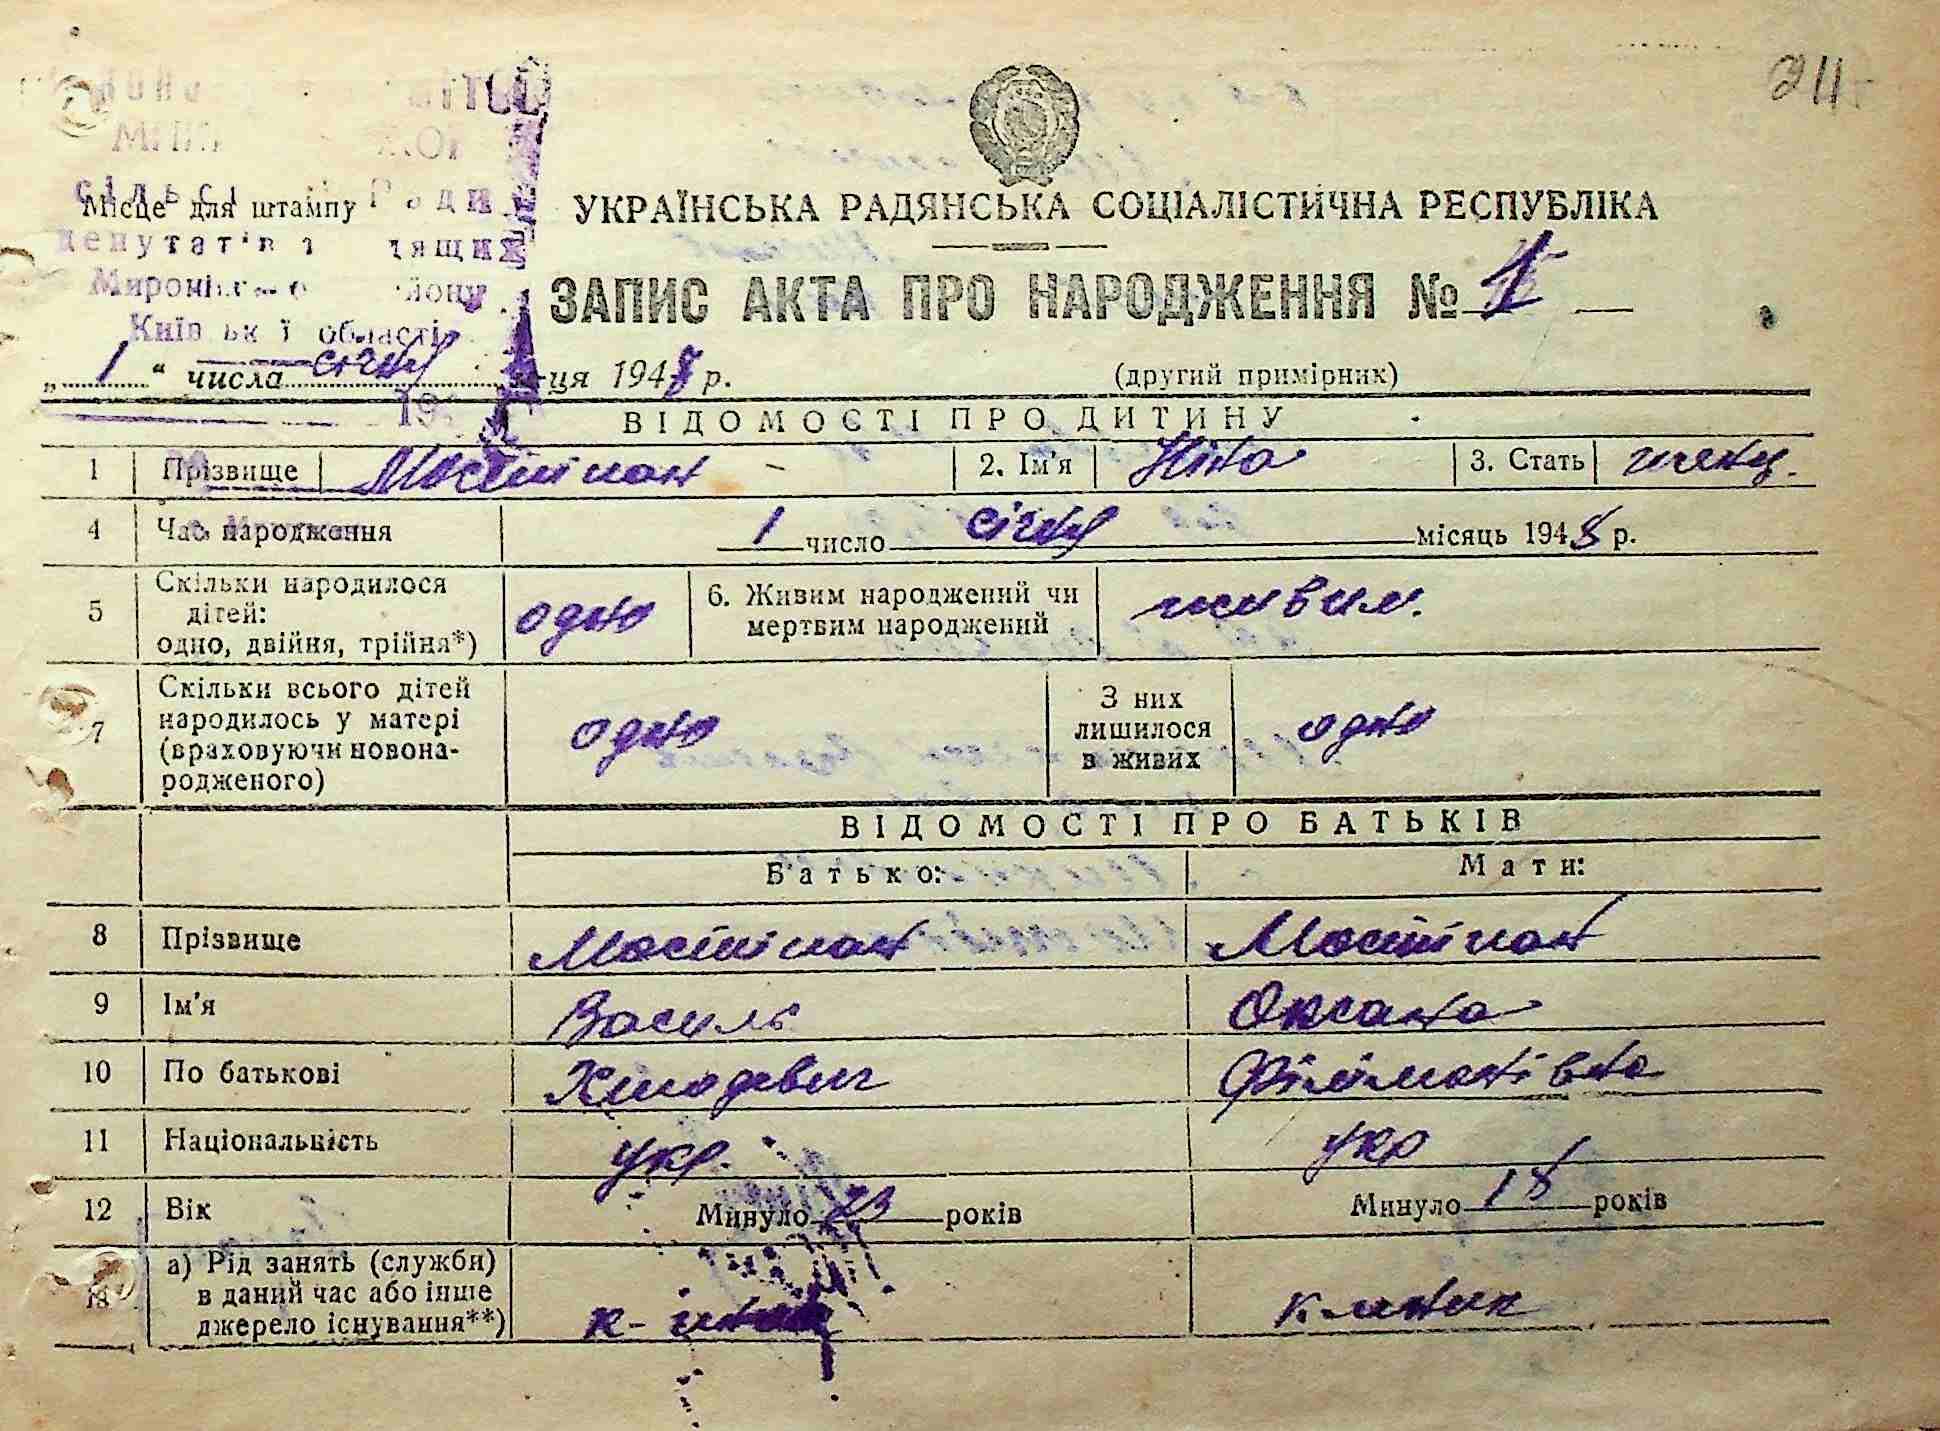 211
Місце для штампу
депутатів
Київ
області
УКРАЇНСЬКА РАДЯНСЬКА СОЦІАЛІСТИЧНА РЕСПУБЛІКА
ЗАПИС АКТА ПРО НАРОДЖЕННЯ № 1
„ 1 “ числа січня м-ця 1948 р. (другий примірник)
ВІДОМОСТІ ПРО ДИТИНУ
1 Прізвище 2. Ім'я Ніна 3. Стать жіноч.
4 Час народження 1 число січня місяць 1948 р.
5 Скільки народилося дітей: одно, двійня, трійня*) одно 6. Живим народжений чи мертвим народжений живим.
7 Скільки всього дітей народилось у матері (враховуючи новонародженого) одно З них лишилося в живих одно
ВІДОМОСТІ ПРО БАТЬКІВ
Батько: Мати:
8 Прізвище
9 Ім'я Василь Оксана
10 По батькові Філімонівна
11 Національність укр. укр
12 Вік Минуло 23 років Минуло 18 років
13 а) Рід занять (служби) в даний час або інше джерело існування**)